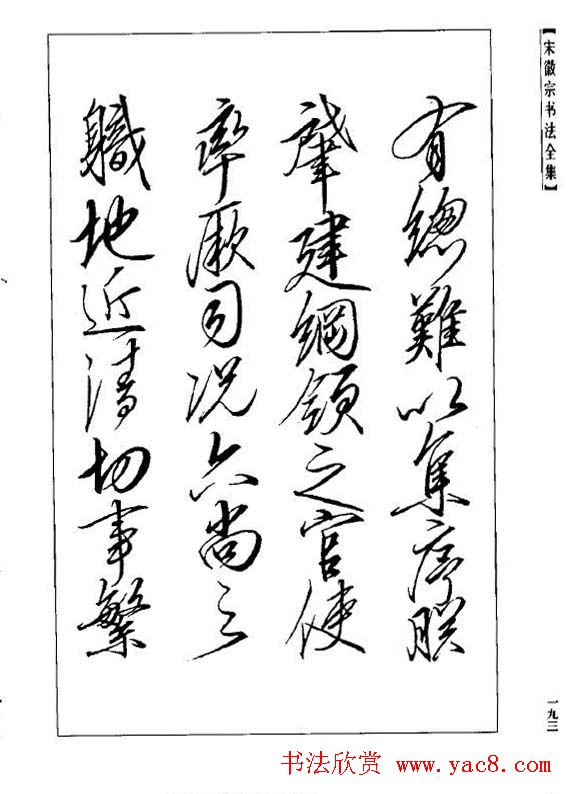 【宋徽宗书法全集】
有總難以集序朕
肇建綱領之官使
率厥司况六尚之
軄地近清切事繁
一九三
书法欣赏 www.yac8.com